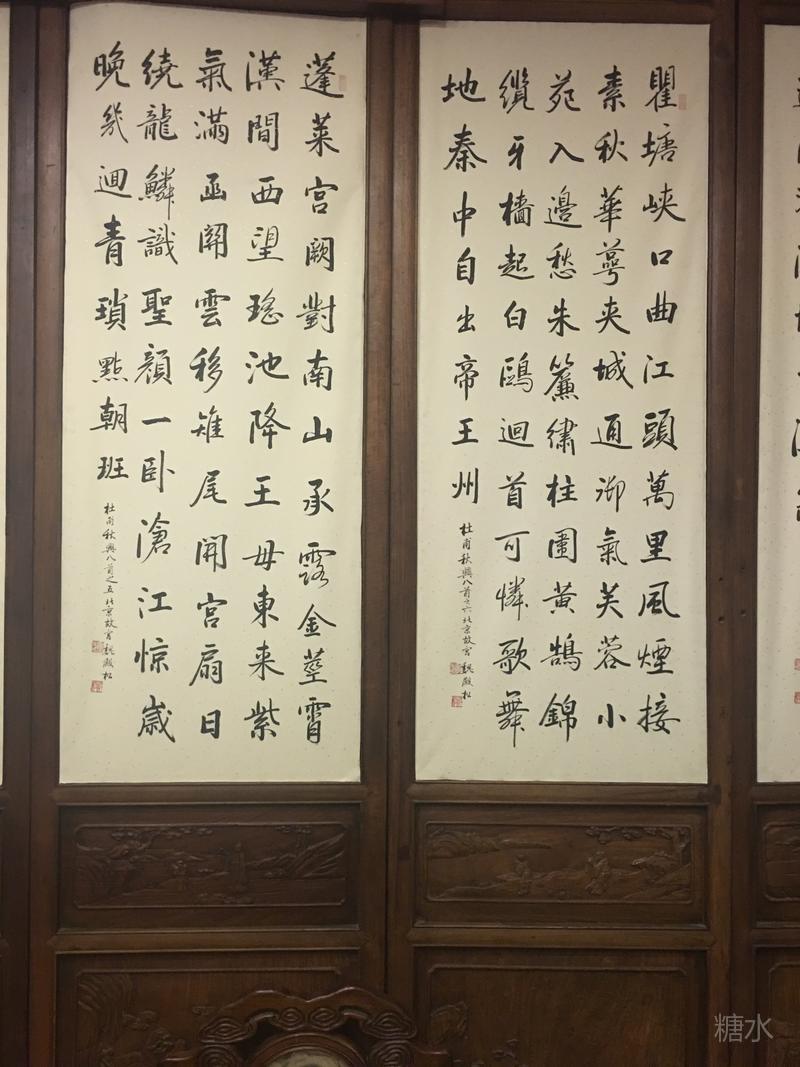 瞿塘峽口曲江頭萬里風煙接
素秋華萼夾城通御氣芙蓉小
苑入邊愁朱簾繡柱圍黃鵠錦
纜牙檣起白鷗迴首可憐歌舞
地秦中自出帝王州
杜甫秋興八首之六北京故宮魏殿松
蓬萊宮闕對南山承露金莖霄
漢間西望瑤池降王母東来紫
氣滿函關雲移雉尾開宮扇日
繞龍鱗識聖顏一卧滄江惊歲
晚幾迴青瑣點朝班
杜甫秋興八首之五北京故宮魏殿松
糖水